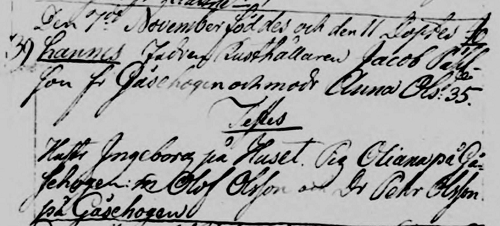 Den 7de November föddes och den 11 Döptes Jo-
39 hannes Fadren Rusthållaren Jacob Pähr-
son fr Gåsehogen och modr Anna Olsdr 35.
Testes
Hustr Ingeborg på Huset. Pig Oliana på Gå-
sehogen: m Olof Olsson och Dr Pehr Olsson
på Gåsehogen